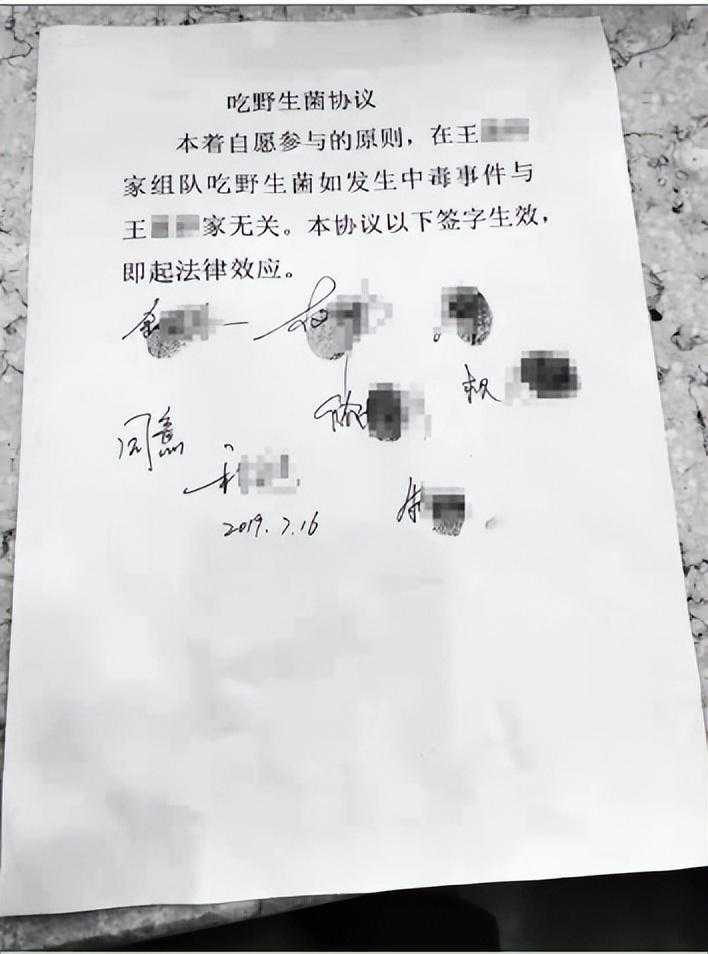 吃野生菌协议
本着自愿参与的原则，在王
家组队吃野生菌如发生中毒事件与
王家无关。本协议以下签字生效，
即起法律效应。
同意
2019.7.16